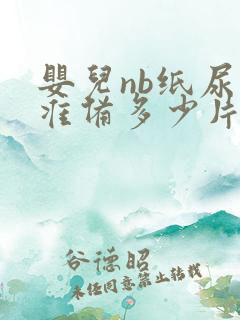 嬰兒nb纸尿
准備多少片
谷德昭
未经同意禁止转载